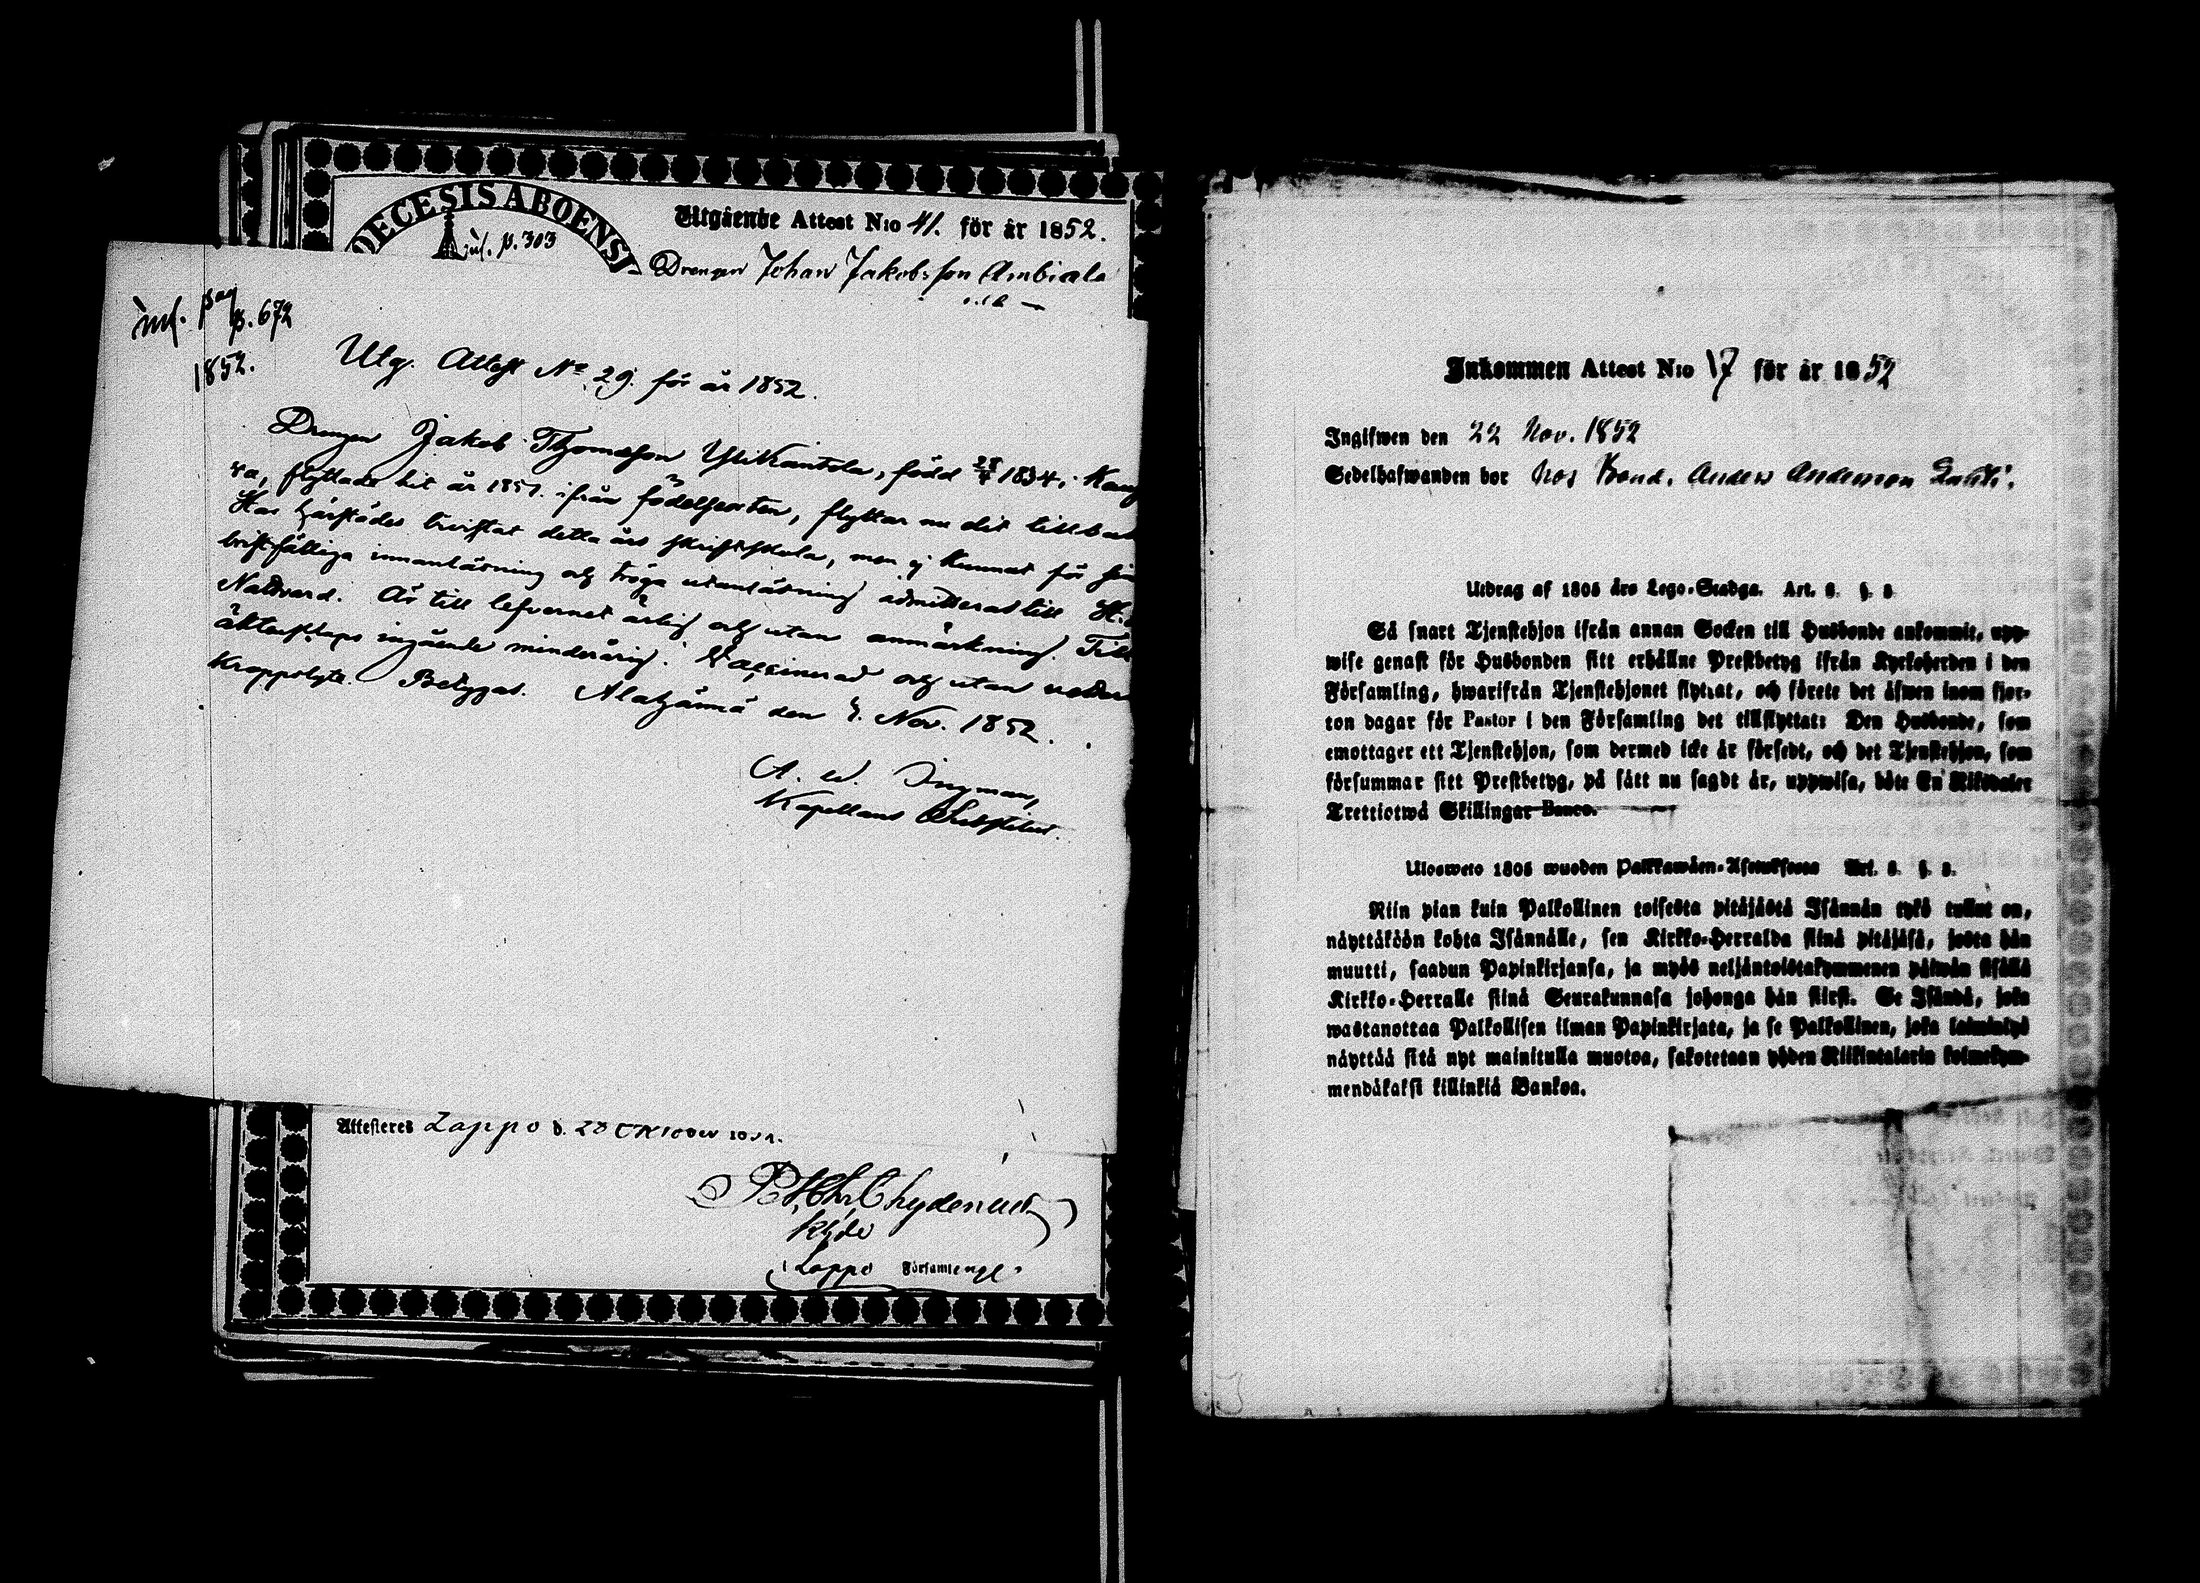 DECESIS ABOENSI
inf. p. 303
Utgående Attest N:o 41. för år 1852.
Drengen Johan Jakobsson Ambiala
inf. pag
p. 672
1852.
Utg. Attest No 29. för år 1852.
Drengen Jakob Thomasson Ylikantola, född 1834 i Kau
va, flyttade hit år 1851. ifrån födelseorten, flyttar nu dit tillba
Har härstädes bevistat detta års skriftskola, men ej kunnat för sin
bristfälliga innanläsning och tröga utanläsning admitteras till H.
Nattvard. Är till lefvernet ärlig och utan anmärkning. Till
äktenskaps ingående minderårig. Vaccinerad och utan
kroppslyte. Betygas. Alahärmä den 4. Nov. 1852.
A. W. Ingman,
Kapellans Substitut.
Attesteras Lappo d. 28 Oktober
Chydenius
Khde
i Lappo Församlenge
Inkommen Attest N:o 17 för år 1852
Ingifwen den 22 Nov. 1852
Sedelhafwanden bor hos Bond. Anders Andersson Lahti.
Utdrag af 1805 års Lego-Stadga. Art. 6. §. 8
Så snart Tjenstehjon ifrån annan Socken till Husbonde ankommit, upp-
wise genast för Husbonden sitt erhållne Prestbetyg ifrån Kyrkoherden i den
Församling, hwarifrån Tjenstehjonet flyttat, och förete det äfwen inom fjor-
ton dagar för Pastor i den Församling det tillflyttat: Den Husbonde, som
emottager ett Tjenstehjon, som dermed icke är försedt, och det Tjenstehjon, som
försummar sitt Prestbetyg, på sätt nu sagdt är, uppwisa, böte En Riksdaler
Trettiotwå Skillingar Banco.
Ulosweto 1805 wuoden Palkkawäen-Asetuksesta Art. 6. §. 8.
Niin pian kuin Palkollinen toisesta pitäjästä Isännän tykö tullut on,
näyttäköön kohta Isännälle, sen Kirkko-Herralda siinä pitäjäsä, josta hän
muutti, saadun Papinkirjansa, ja myös neljäntoistakymmenen päiwän sisällä
Kirkko-Herralle siinä Seurakunnasa johonga hän siirsi. Se Isändä, joka
wastanottaa Palkollisen ilman Papinkirjata, ja se Palkollinen, joka laiminlyö
näyttää sitä nyt mainitulla muotoa, sakotetaan yhden Riikintalarin kolmekym-
mendäkaksi killinkiä Bankoa.